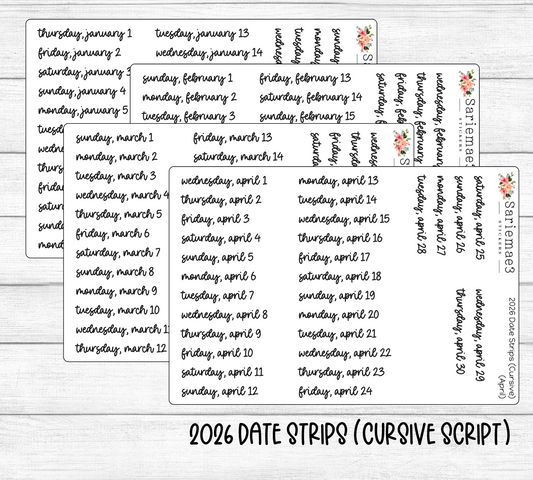 thursday, january 1
friday, january 2
saturday, january 3
sunday, january 4
monday, january 5
thursday, january 13
wednesday, january 14
sunday,
monday,
tuesday,
wednes
Sarie
sunday, february 1
monday, february 2
tuesday, february 3
friday, february 13
saturday, february 14
sunday, february 15
wednesday, february
thursday, february
friday, february
saturday, f
Sariemae3
STICKERS
sunday, march 1
monday, march 2
tuesday, march 3
wednesday, march 4
thursday, march 5
friday, march 6
saturday, march 7
sunday, march 8
monday, march 9
tuesday, march 10
wednesday, march 11
thursday, march 12
friday, march 13
saturday, march 14
wednes
thursday
friday,
saturday,
wednesday, april 1
thursday, april 2
friday, april 3
saturday, april 4
sunday, april 5
monday, april 6
tuesday, april 7
wednesday, april 8
thursday, april 9
friday, april 10
saturday, april 11
sunday, april 12
monday, april 13
tuesday, april 14
wednesday, april 15
thursday, april 16
friday, april 17
saturday, april 18
sunday, april 19
monday, april 20
tuesday, april 21
wednesday, april 22
thursday, april 23
friday, april 24
saturday, april 25
sunday, april 26
monday, april 27
tuesday, april 28
wednesday, april 29
thursday, april 30
Sariemae3
STICKERS
2026 Date Strips (Cursive)
(April)
2026 DATE STRIPS (CURSIVE SCRIPT)